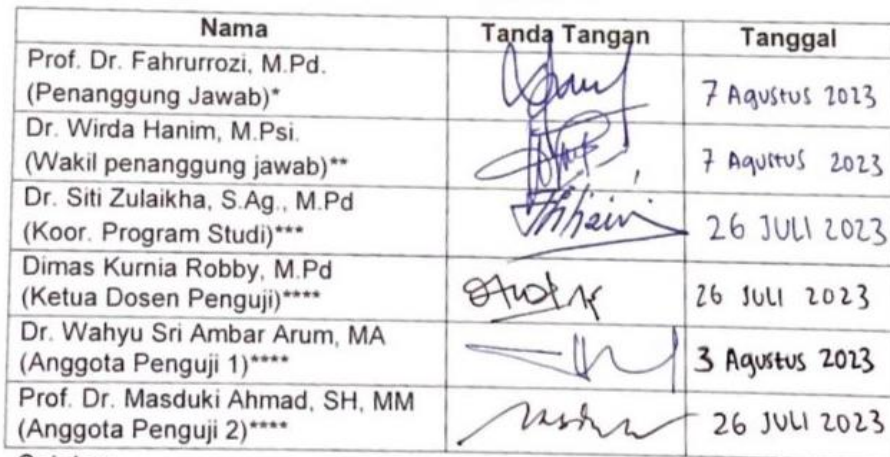 Nama Tanda Tangan Tanggal
Prof. Dr. Fahrurrozi, M.Pd.
(Penanggung Jawab)* 7 Agustus 2023
Dr. Wirda Hanim, M.Psi.
(Wakil penanggung jawab)** 7 Agustus 2023
Dr. Siti Zulaikha, S.Ag., M.Pd
(Koor. Program Studi)*** 26 JULI 2023
Dimas Kurnia Robby, M.Pd
(Ketua Dosen Penguji)**** 26 JULI 2023
Dr. Wahyu Sri Ambar Arum, MA
(Anggota Penguji 1)**** 3 Agustus 2023
Prof. Dr. Masduki Ahmad, SH, MM
(Anggota Penguji 2)**** 26 JULI 2023